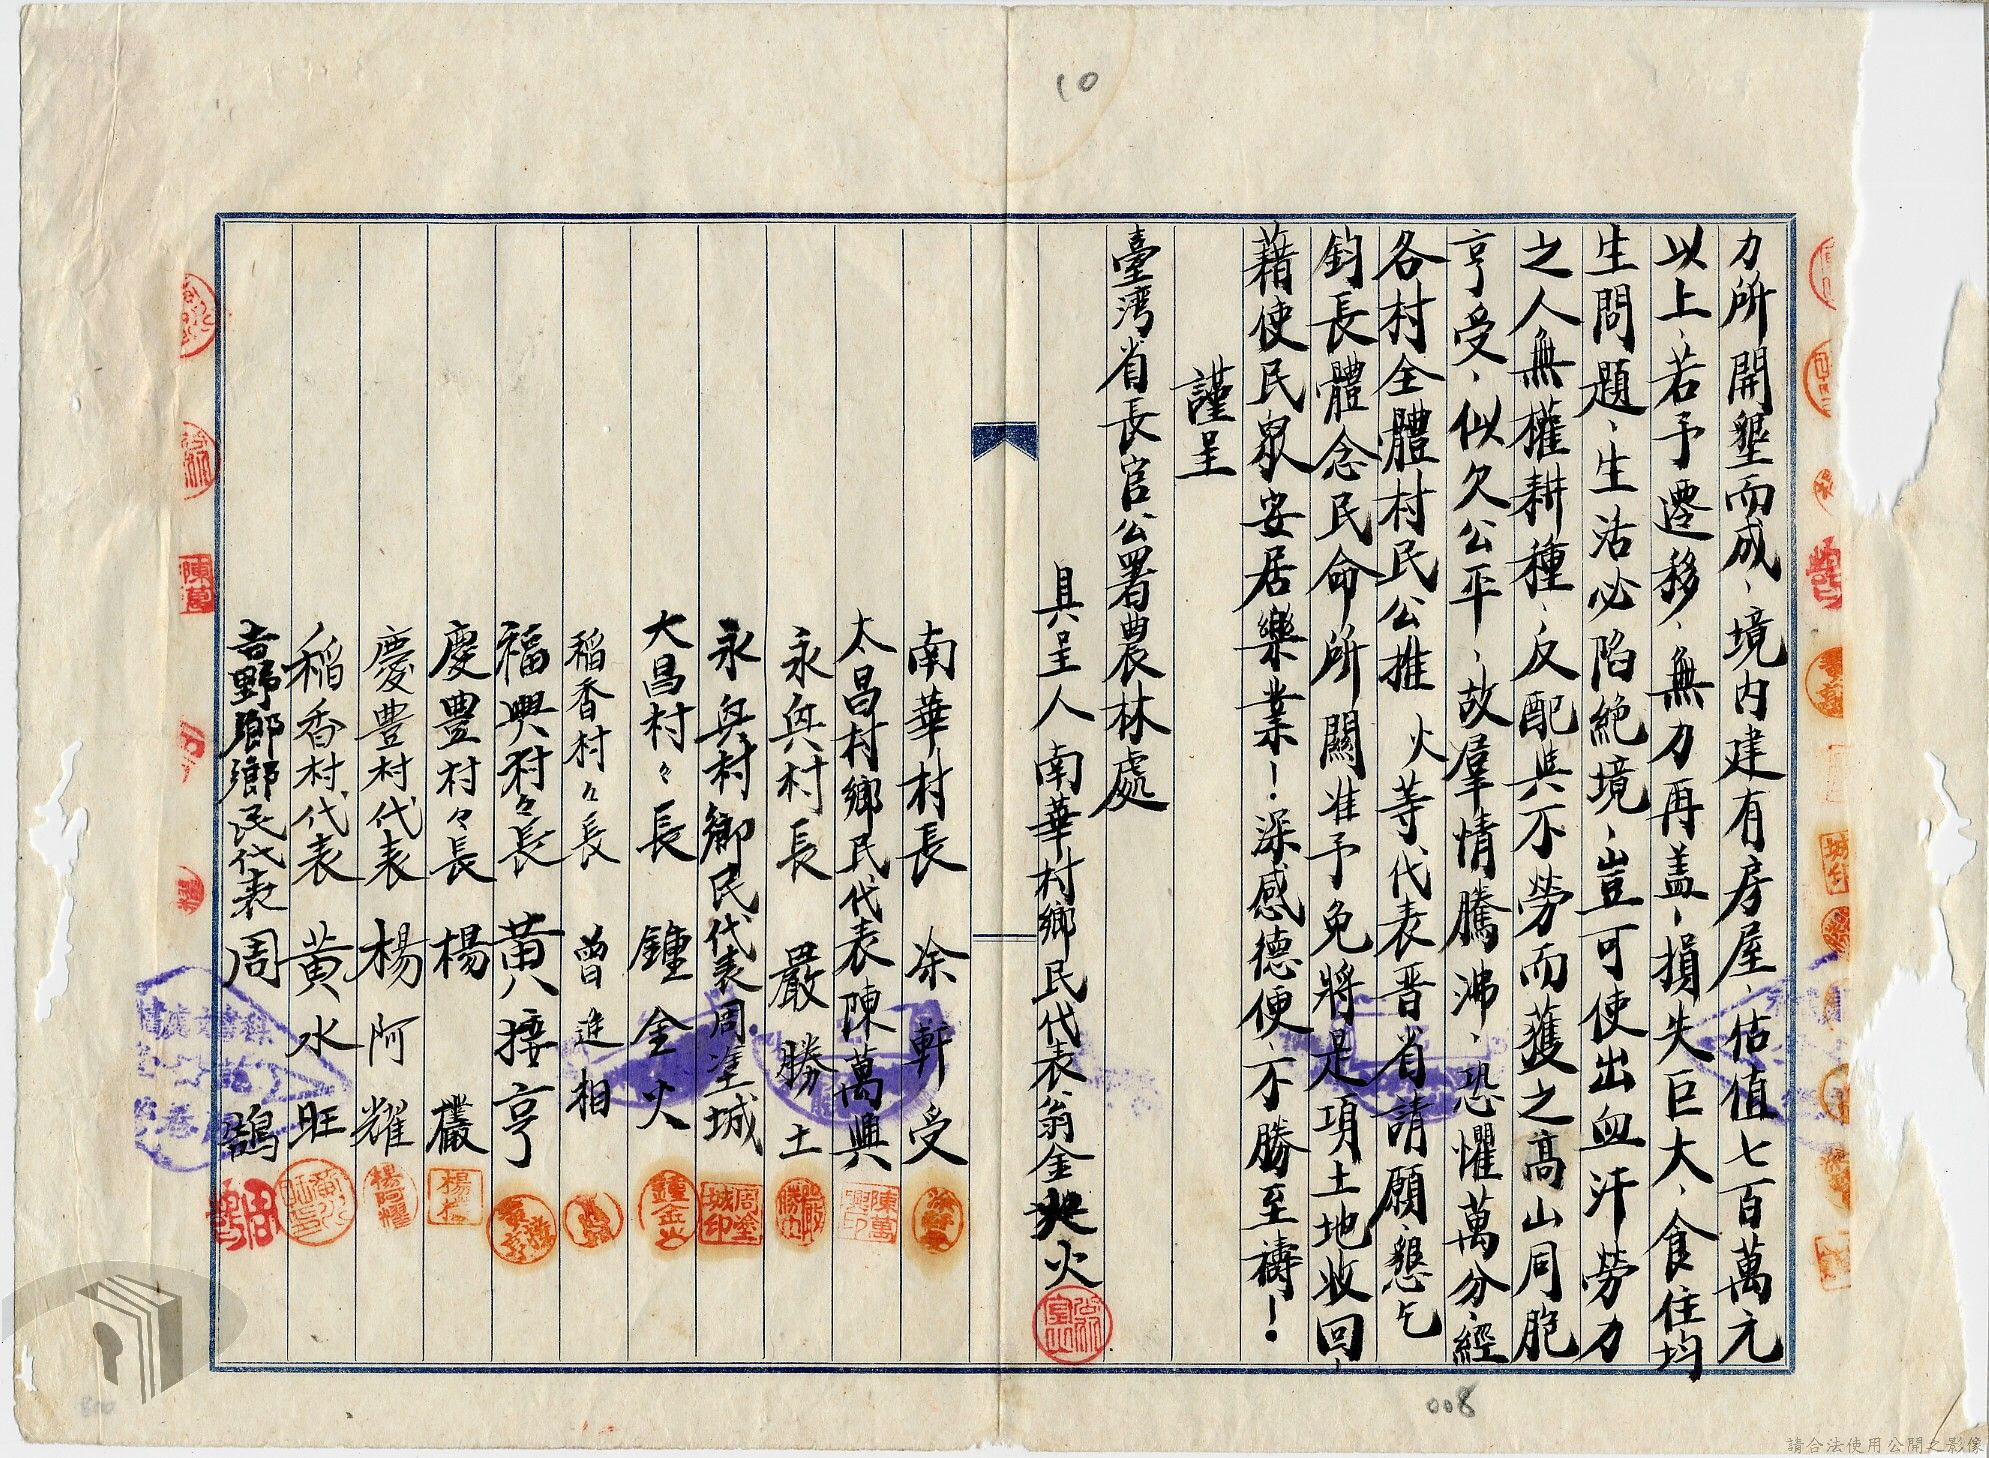 10
力所開墾而成、境內建有房屋、估值七百萬元
以上、若予遷移、無力再盖、損失巨大、食住均
生問題、生活必陷絕境、豈可使出血汗勞力
之人無權耕種、反配與不勞而獲之高山同胞
亨受、似欠公平、故羣情騰沸、恐懼萬分、經
各村全體村民公推 火等代表晋省請願、懇乞
鈞長體念民命所關准予免將是項土地收回、
藉使民眾安居樂業！深感德便、不勝至禱！
謹呈
臺灣省長官公署農林處
具呈人南華村鄉民代表翁金火
南華村長 凃軒受
太昌村鄉民代表陳萬興
永興村長 嚴勝土
永興村鄉民代表周塗城
大昌村々長 鍾金火
稻香村々長 曾進相
福興村々長 黄接亨
慶豊村々長 楊欉
慶豊村代表 楊阿耀
稻香村代表 黄水旺
吉野鄉鄉民代表 周鵠
008
請合法使用公開之影像